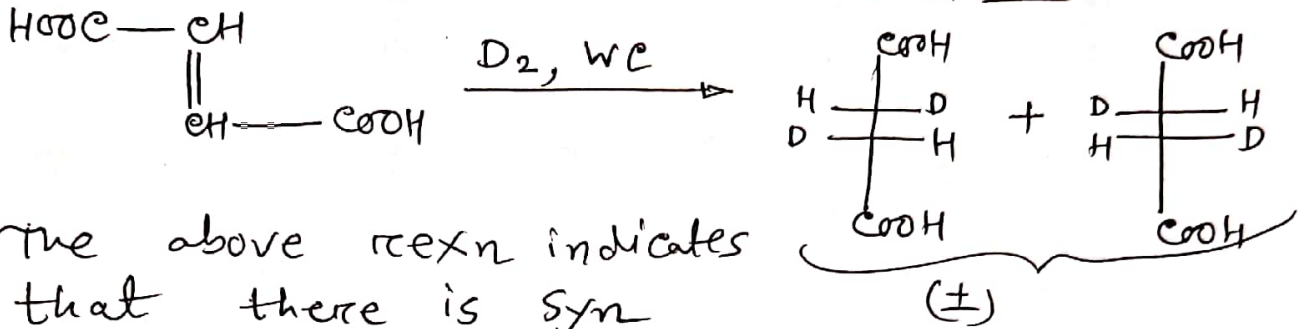 HOOC — CH
||
CH — COOH
D2, WC
COOH
H D
D H
COOH
+
COOH
D H
H D
COOH
(±)
The above rexn indicates
that there is syn